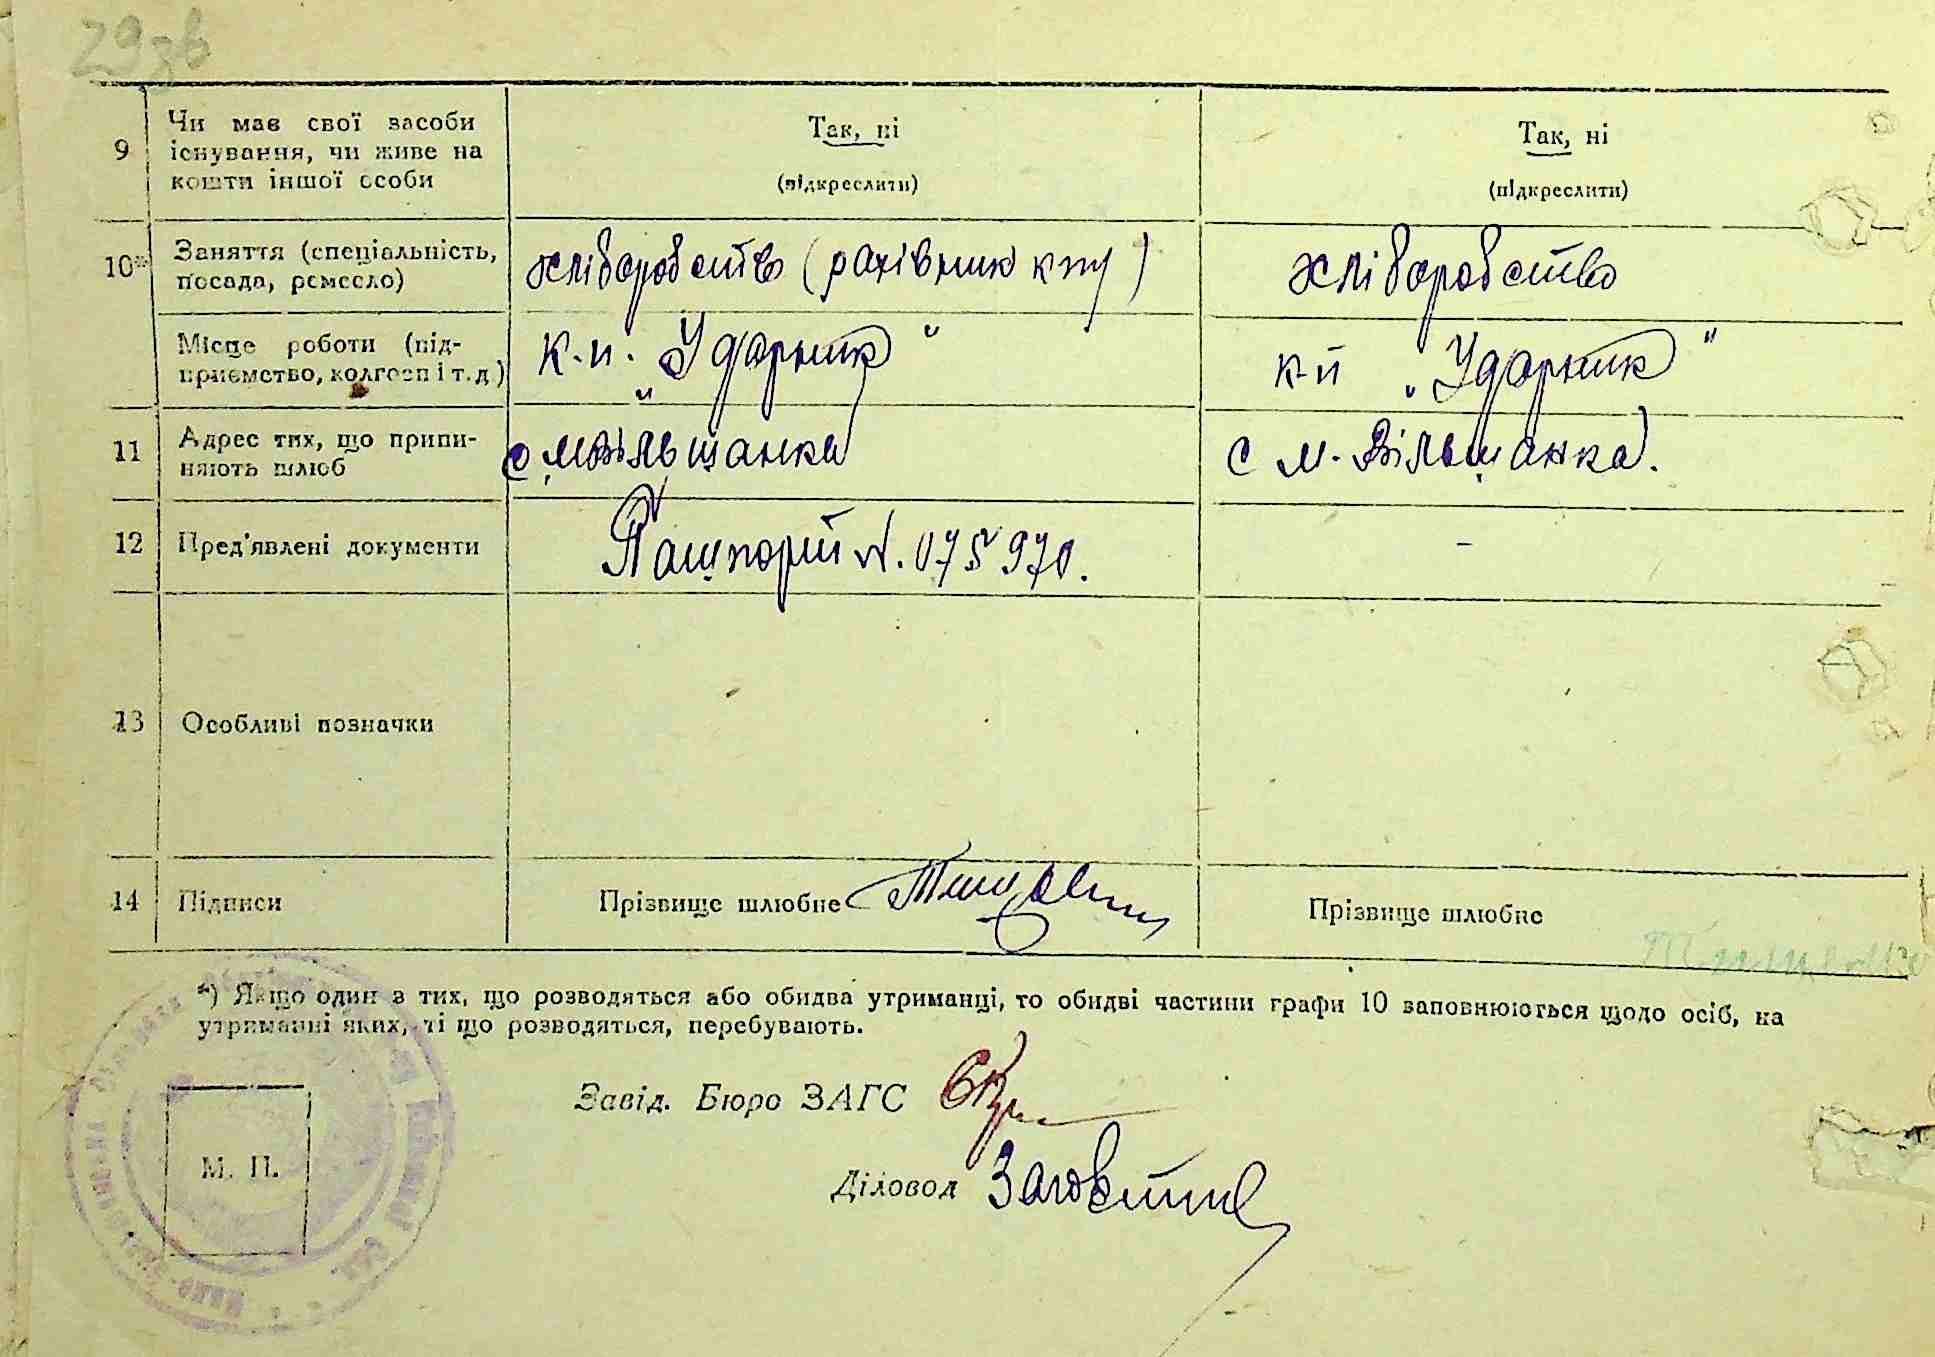 29зв
9 Чи має свої засоби існування, чи живе на кошти іншої особи
Так, ні
(підкреслити)
Так, ні
(підкреслити)
10* Заняття (спеціальність, посада, ремесло)
хліборобство (рахівник кпу)
хліборобство
Місце роботи (підприємство, колгосп і т.д.)
к.п. „Ударник"
к-п „Ударник"
11 Адрес тих, що припиняють шлюб
с м. Вільшанка
с м. Вільшанка.
12 Пред'явлені документи
Пашпорт N. 075970.
–
13 Особливі позначки
14 Підписи
Прізвище шлюбне
Прізвище шлюбне
*) Якщо один з тих, що розводяться або обидва утриманці, то обидві частини графи 10 заповнюються щодо осіб, на
утриманні яких, ті що розводяться, перебувають.
Завід. Бюро ЗАГС
М. П.
Діловод